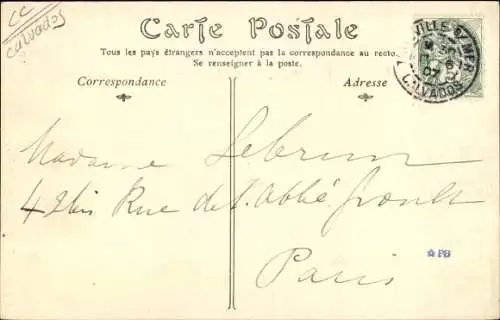 CC
Calvados
Carte Postale
Tous les pays étrangers n'acceptent pas la correspondance au recto.
Se renseigner à la poste.
Correspondance
Adresse
VILLE S/ MER
07
CALVADOS
Madame Lebrun
42bis Rue de l'Abbé Groult
Paris
PB